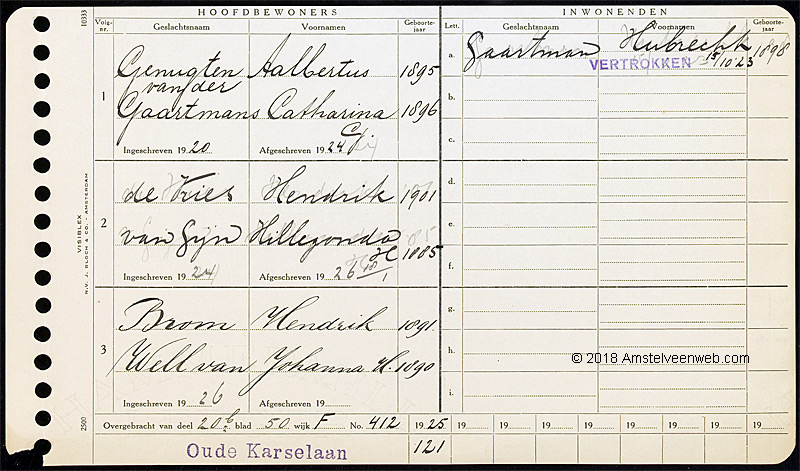 HOOFDBEWONERS
INWONENDEN
10333
Volg-
nr.
Geslachtsnaam
Voornamen
Geboorte-
jaar
Lett.
Geslachtsnaam
Voornamen
Geboorte-
jaar
1
Genugten Aalbertus 1895
van der
Gaartmans Catharina 1896
Ingeschreven 1920 Afgeschreven 1924
a. Gaartman Hubrecht 1898
VERTROKKEN 15/10 23
b.
c.
2
de Vries Hendrik 1901
van Gijn Hillegonda 1885
H
Ingeschreven 1924 Afgeschreven 1926
d.
e.
f.
3
Brom Hendrik 1891
Well van Johanna H. 1890
Ingeschreven 1926 Afgeschreven 19
g.
h.
i.
© 2018 Amstelveenweb.com
VISIBLEX
N.V. J. BLOCH & CO. - AMSTERDAM
2500
Overgebracht van deel 20 blad 50 wijk F No. 412 1925 19 19 19 19 19 19 19 19
Oude Karselaan 121